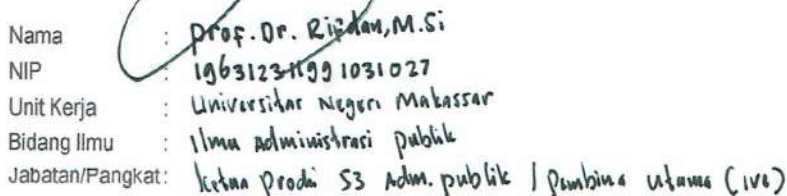 Nama : Prof. Dr. Rifdan, M.Si
NIP : 196312311991031027
Unit Kerja : Universitas Negeri Makassar
Bidang Ilmu : Ilmu Administrasi Publik
Jabatan/Pangkat: Ketua Prodi S3 Adm. publik / Pembina utama (IVe)